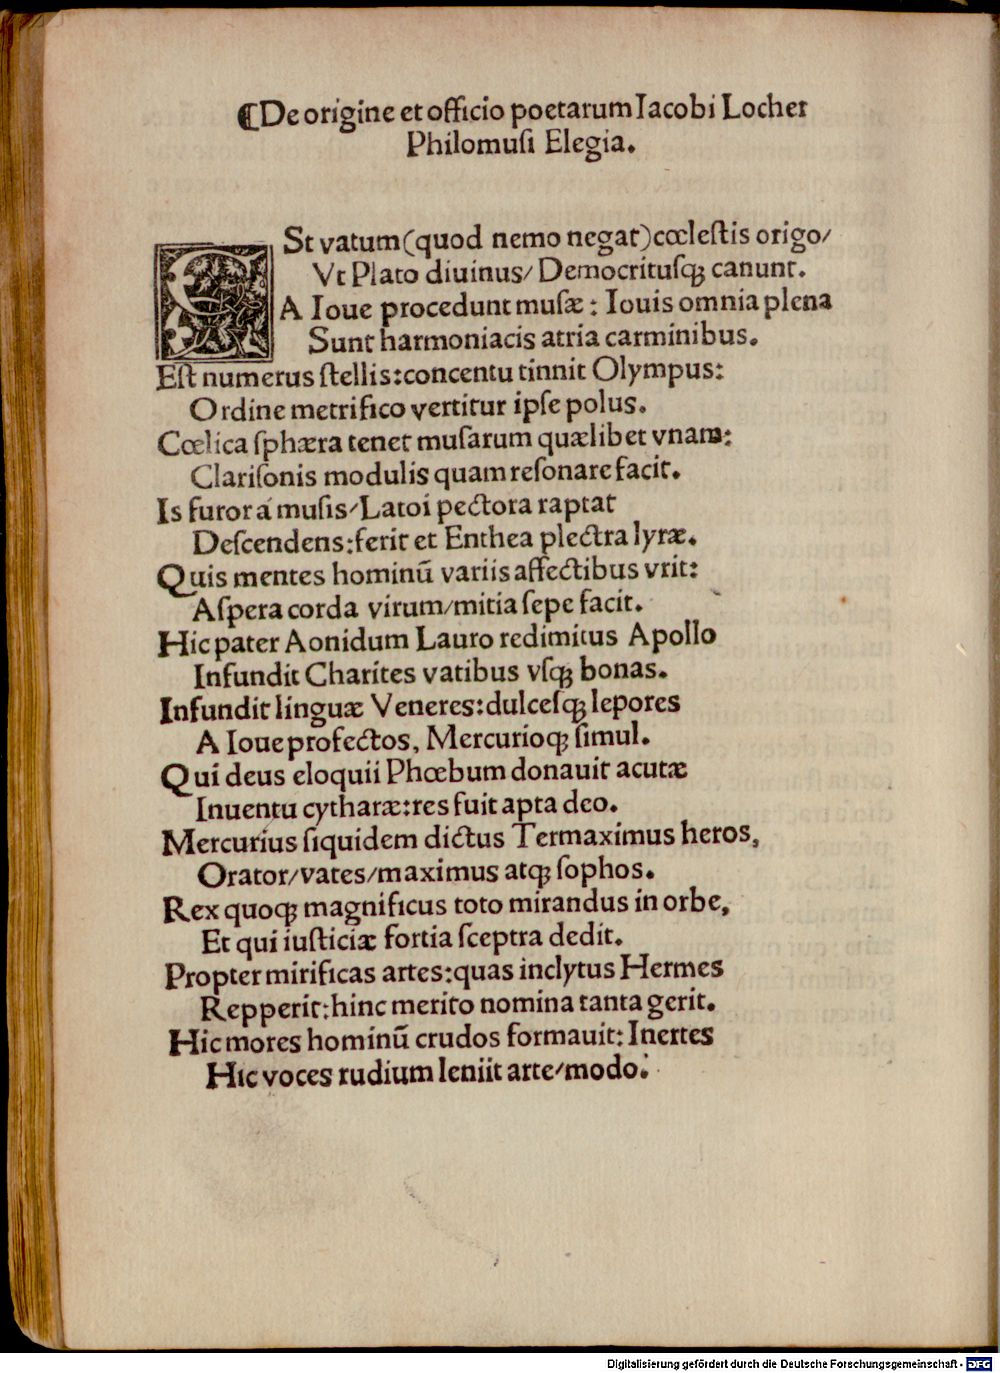 ⸿De origine et officio poetarum Iacobi Locher
Philomuſi Elegia.
ESt vatum(quod nemo negat)cœleſtis origo/
Vt Plato diuinus/ Democrituſqꝫ canunt.
A Ioue procedunt muſæ: Iouis omnia plena
Sunt harmoniacis atria carminibus.
Eſt numerus ſtellis:concentu tinnit Olympus:
Ordine metrifico vertitur ipſe polus.
Cœlica ſphæra tenet muſarum quælibet vnam:
Clariſonis modulis quam reſonare facit.
Is furor á muſis/Latoi pectora raptat
Deſcendens:ferit et Enthea plectra lyræ.
Quis mentes hominū variis affectibus vrit:
Aſpera corda virum/mitia ſepe facit.
Hic pater Aonidum Lauro redimitus Apollo
Infundit Charites vatibus vſqꝫ bonas.
Infundit linguæ Veneres:dulceſqꝫ lepores
A Ioue profectos, Mercurioqꝫ ſimul.
Qui deus eloquii Phœbum donauit acutæ
Inuentu cytharæ:res fuit apta deo.
Mercurius ſiquidem dictus Termaximus heros,
Orator/vates/maximus atqꝫ ſophos.
Rex quoqꝫ magnificus toto mirandus in orbe,
Et qui iuſticiæ fortia ſceptra dedit.
Propter mirificas artes:quas inclytus Hermes
Repperit:hinc merito nomina tanta gerit.
Hic mores hominū crudos formauit: Inertes
Hic voces rudium leniit arte/modo.
Digitalisierung gefördert durch die Deutsche Forschungsgemeinschaft - DFG